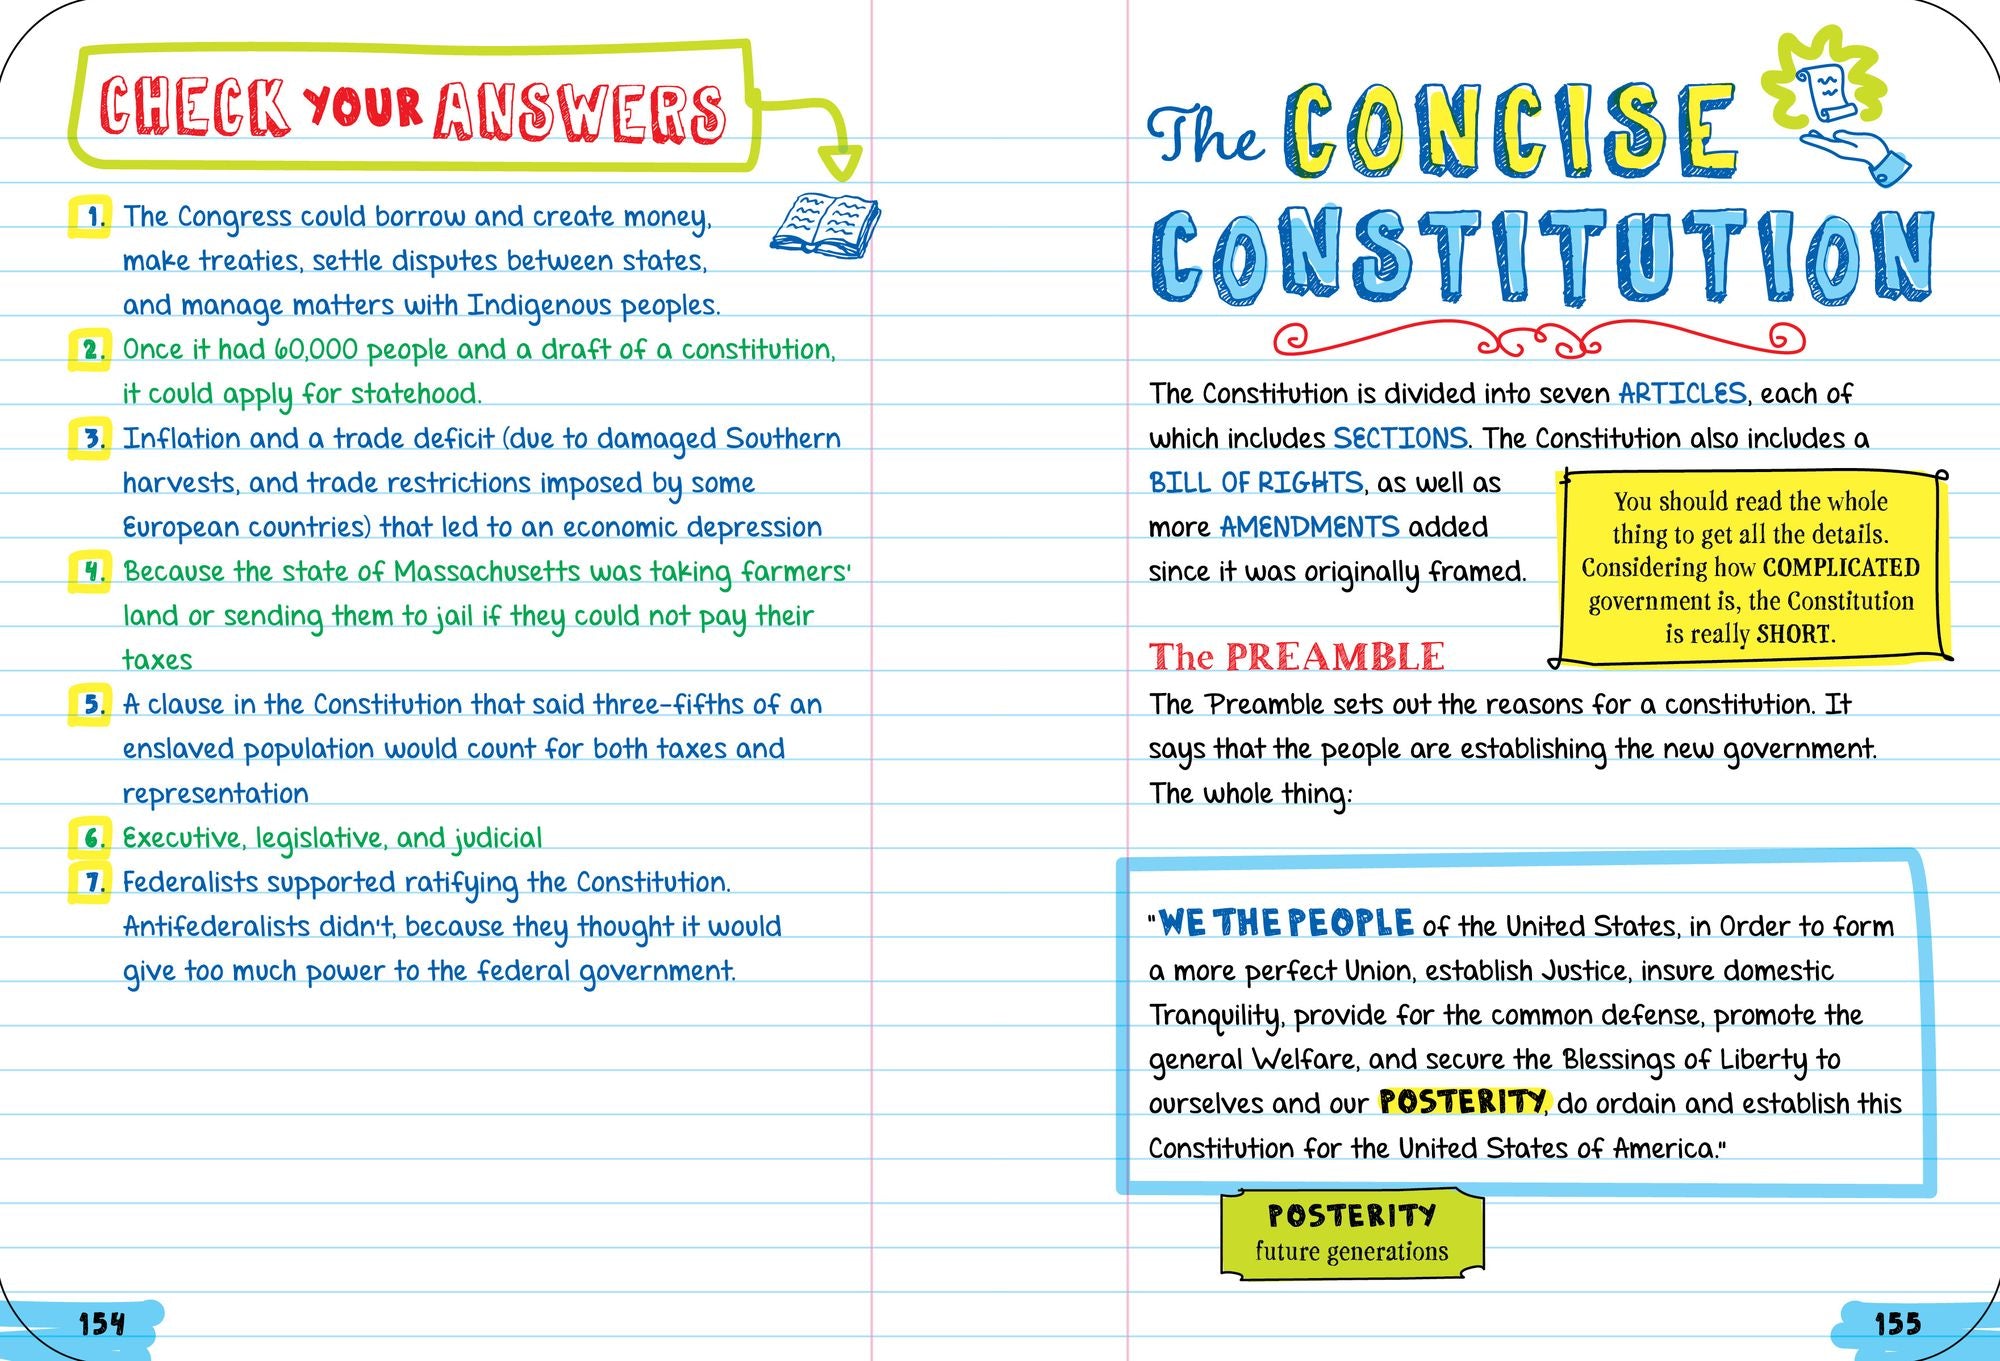 CHECK YOUR ANSWERS
1. The Congress could borrow and create money,
make treaties, settle disputes between states,
and manage matters with Indigenous peoples.
2. Once it had 60,000 people and a draft of a constitution,
it could apply for statehood.
3. Inflation and a trade deficit (due to damaged Southern
harvests, and trade restrictions imposed by some
European countries) that led to an economic depression
4. Because the state of Massachusetts was taking farmers'
land or sending them to jail if they could not pay their
taxes
5. A clause in the Constitution that said three-fifths of an
enslaved population would count for both taxes and
representation
6. Executive, legislative, and judicial
7. Federalists supported ratifying the Constitution.
Antifederalists didn't, because they thought it would
give too much power to the federal government.
154
The CONCISE
CONSTITUTION
The Constitution is divided into seven ARTICLES, each of
which includes SECTIONS. The Constitution also includes a
BILL OF RIGHTS, as well as
more AMENDMENTS added
since it was originally framed.
You should read the whole
thing to get all the details.
Considering how COMPLICATED
government is, the Constitution
is really SHORT.
The PREAMBLE
The Preamble sets out the reasons for a constitution. It
says that the people are establishing the new government.
The whole thing:
"WE THE PEOPLE of the United States, in Order to form
a more perfect Union, establish Justice, insure domestic
Tranquility, provide for the common defense, promote the
general Welfare, and secure the Blessings of Liberty to
ourselves and our POSTERITY, do ordain and establish this
Constitution for the United States of America."
POSTERITY
future generations
155